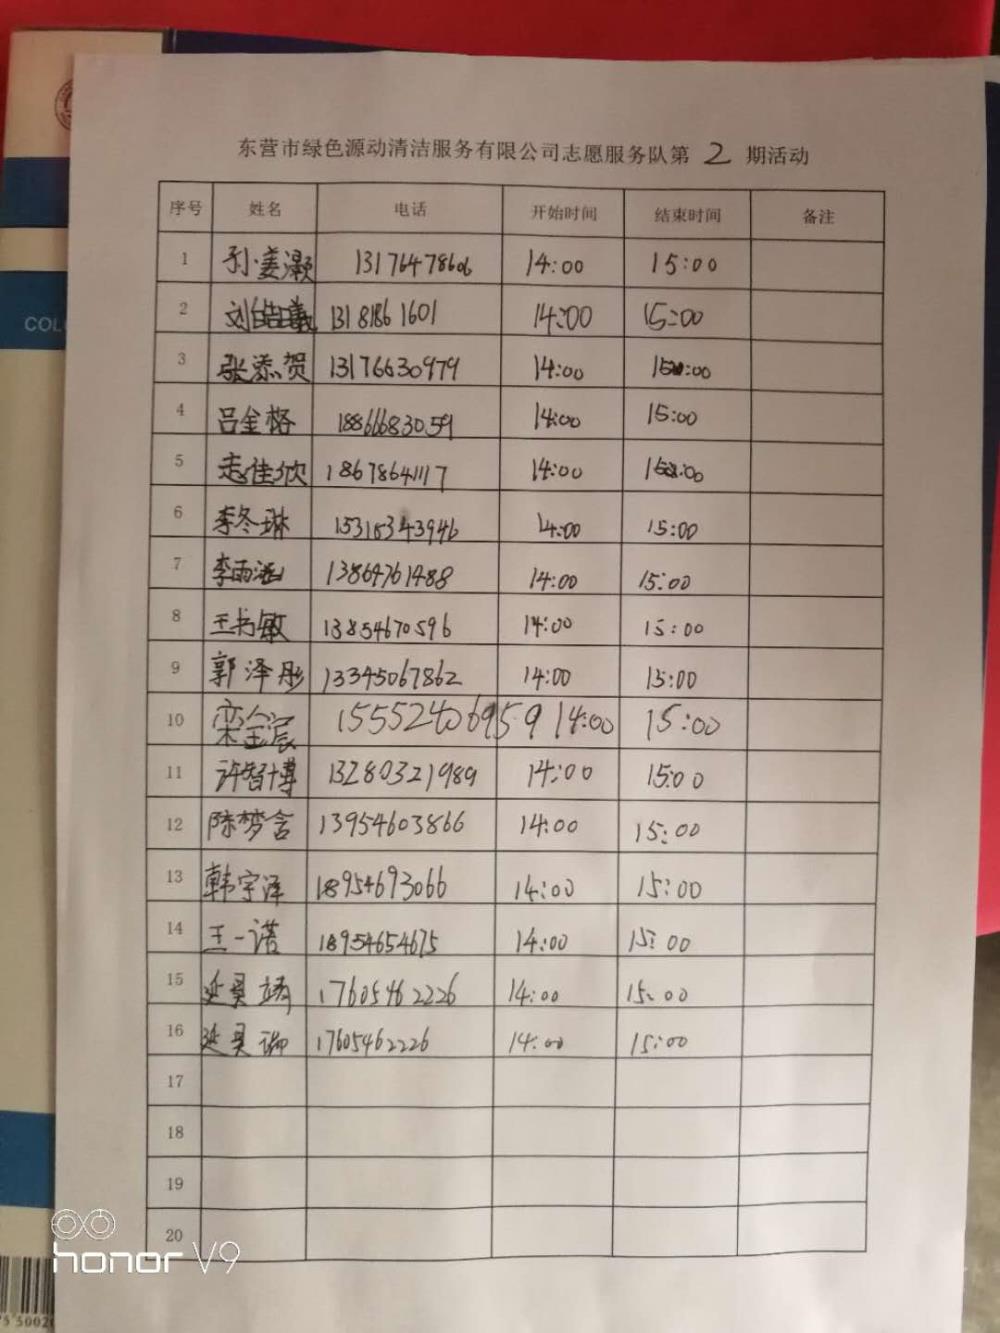 东营市绿色源动清洁服务有限公司志愿服务队第 2 期活动
序号 姓名 电话 开始时间 结束时间 备注
1 孙姜灏 13176478606 14:00 15:00
2 刘皓曦 13181861601 14:00 15:00
3 张添贺 13176630979 14:00 15:00
4 吕金格 18866683059 14:00 15:00
5 佳欣 18678641117 14:00 15:00
6 李冬琳 15315343946 14:00 15:00
7 李雨涵 13864761488 14:00 15:00
8 王书敏 13854670596 14:00 15:00
9 郭泽彤 13345067862 14:00 15:00
10 栾金宸 14:00 15:00
11 许智博 13280321989 14:00 15:00
12 陈梦含 13954603866 14:00 15:00
13 韩宇泽 18954693066 14:00 15:00
14 王一诺 18954654675 14:00 15:00
15 延昊 17605462226 14:00 15:00
16 延昊 17605462226 14:00 15:00
17
18
19
20
COL
honor V9